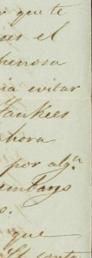 que te
es el
penosa
ia evitar
Yankees
ahora
por alg.ª
embargo
s.
que